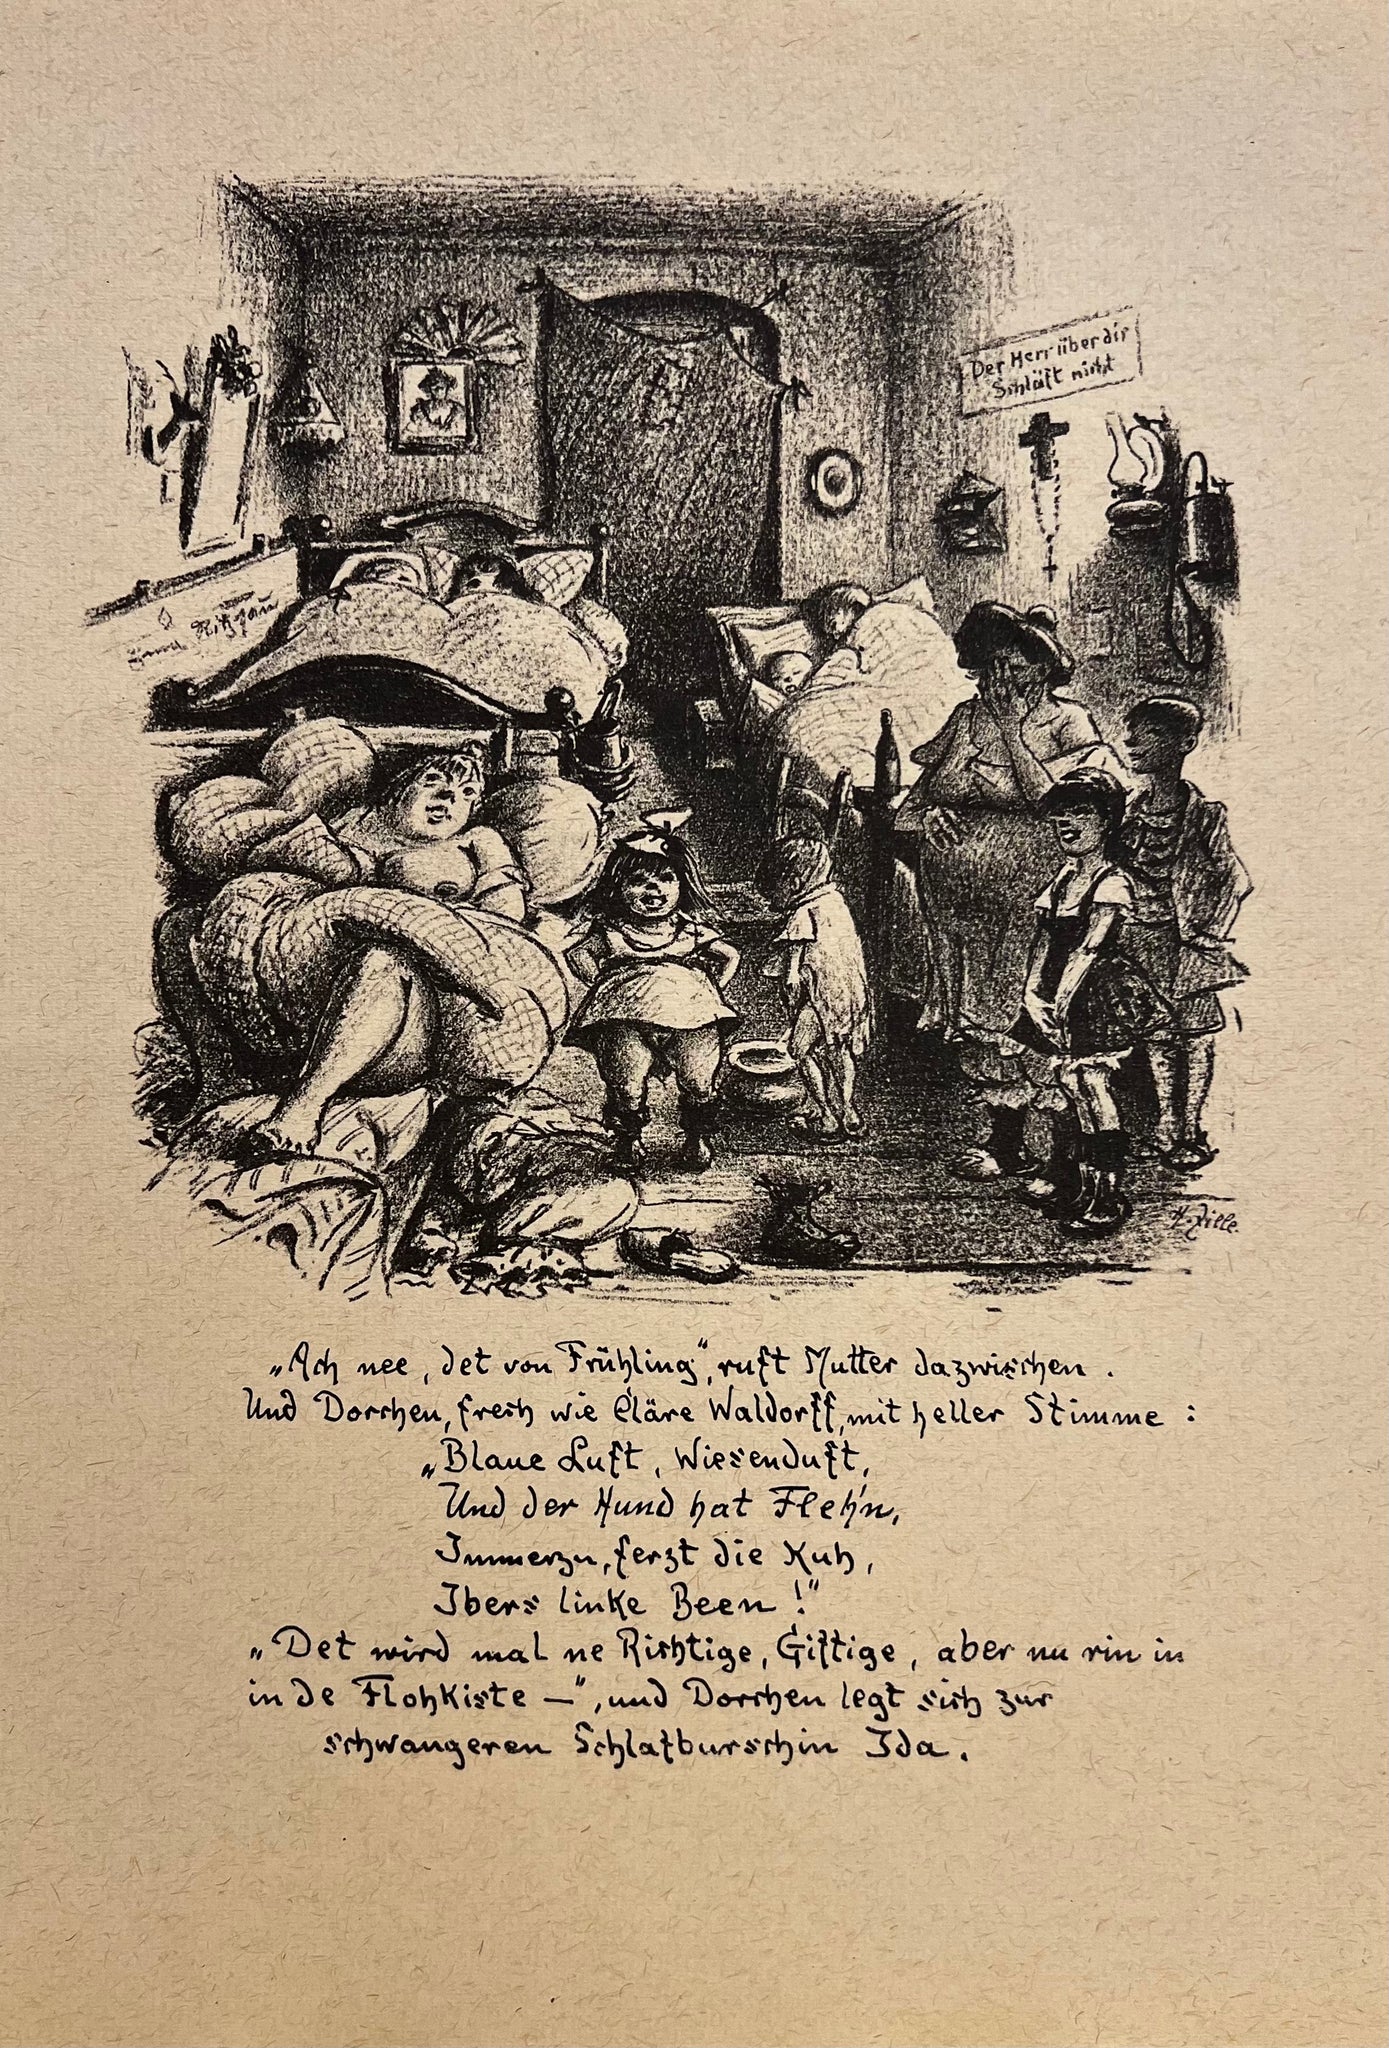 Der Herr über dir
Schläft nicht
H. Zille.
„Ach nee, det von Frühling“, ruft Mutter dazwischen.
Und Dorchen, frech wie Cläre Waldorff, mit heller Stimme:
„Blaue Luft, Wiesenduft,
Und der Hund hat Fleh'n,
Immerzu, ferzt die Kuh,
Ibers linke Been!“
„Det wird mal ne Richtige, Giftige, aber nu rin in
in de Flohkiste —“, und Dorchen legt sich zur
schwangeren Schlafburschin Ida.